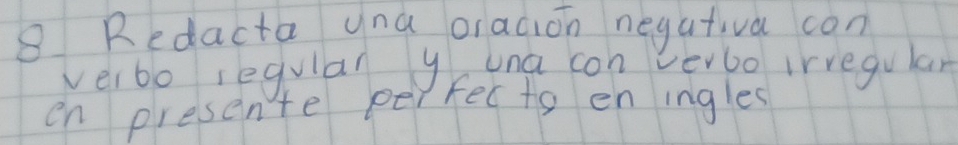 8_ Redacta una oración negativa con
verbo regular y una con verbo irregular
en presente perfecto en ingles